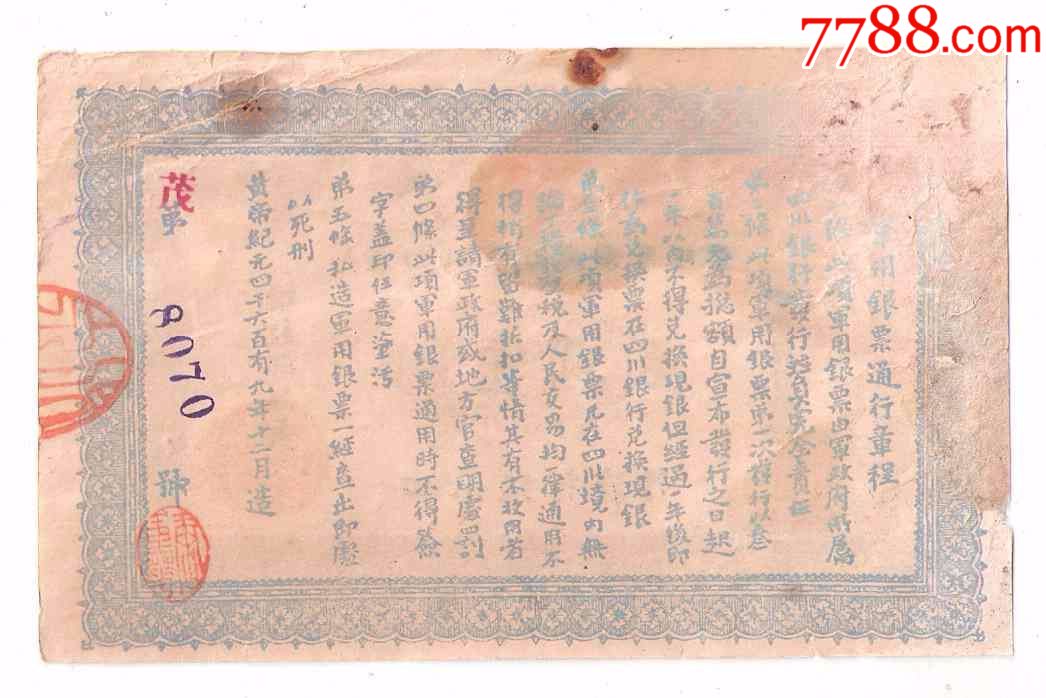 7788.com
軍用銀票通行章程
條此項軍用銀票由軍政府所屬
四川銀行發行擔負完全責任
條此項軍用銀票第二次發行叁
百萬元為總額自宣布發行之日起
一年以內不得兌換現銀但經過一年後即
作為兌換票在四川銀行兌換現銀
第三條此項軍用銀票凡在四川境內無
論稅及人民交易均一律通用不
得稍有留難折扣等情其有不收用者
得呈請軍政府或地方官查明處罰
第四條此項軍用銀票適用時不得簽
字蓋印任意塗污
第五條私造軍用銀票一經查出即處
以死刑
黃帝紀元四千六百有九年十二月造
茂第 8070 號